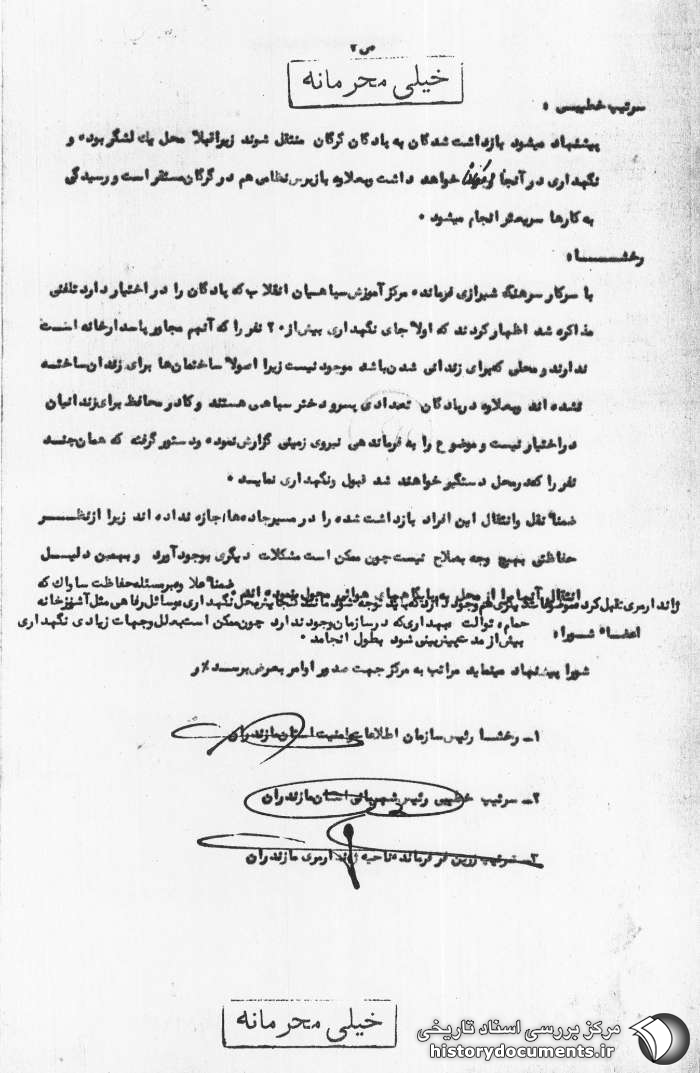 ص ۲
خیلی محرمانه
سرتیپ خطیبی :
پیشنهاد میشود بازداشت شدگان به پادگان گرگان منتقل شوند زیرا قبلا" محل یک لشگر بوده و
نگهداری در آنجا خواهد داشت وبعلاوه بازپرس نظامی هم در گرگان مستقر است و رسیدگی
به کارها سریعتر انجام میشود .
رخشا :
با سرکار سرهنگ شیرازی فرمانده مرکز آموزش سپاهیان انقلاب که پادگان را در اختیار دارد تلفنی
مذاکره شد اظهار کردند که اولا" جای نگهداری بیش از ۲۰ نفر را که آنهم مجاور پاسدارخانه است
ندارند و محلی که برای زندانی شدن باشد موجود نیست زیرا اصولا" ساختمان‌ها برای زندان ساخته
نشده اند وبعلاوه در پادگان تعدادی پسر و دختر سپاهی هستند و کادر محافظ برای زندانیان
در اختیار نیست و موضوع را به فرماندهی نیروی زمینی گزارش نموده و دستور گرفته که همان چند
نفر را که در محل دستگیر خواهند شد قبول و نگهداری نمایند .
ضمنا" نقل و انتقال این افراد بازداشت شده را در مسیر جاده‌ها اجازه نداده اند زیرا از نظر
حفاظتی بهیچ وجه بصلاح نیست چون ممکن است مشکلات دیگری بوجود آورد و بهمین دلیل
انتقال آنها را از محل به پایگاههای هوانیز محول نموده اند .
ضمنا" علاوه بر مسئله حفاظت ساواک که
ژاندارمری تقبل کرده موضوعات دیگری هم وجود دارد که باید توجه شود مانند گنجایش محل نگهداری و وسائل رفاهی مثل آشپزخانه
حمام ، توالت بهداری که در سازمان وجود ندارد چون ممکن است بعلل و جهات زیادی نگهداری
بیش از مدت پیش بینی شود بطول انجامد .
اعضاء شورا :
شورا پیشنهاد مینماید مراتب به مرکز جهت صدور اوامر بعرض برسد /ر
۱ـ رخشا رئیس سازمان اطلاعات و امنیت استان مازندران
۲ـ سرتیپ خطیبی رئیس شهربانی استان مازندران
۳ـ سرتیپ زرین فر فرمانده ناحیه ژاندارمری مازندران
خیلی محرمانه
مرکز بررسی اسناد تاریخی
historydocuments.ir